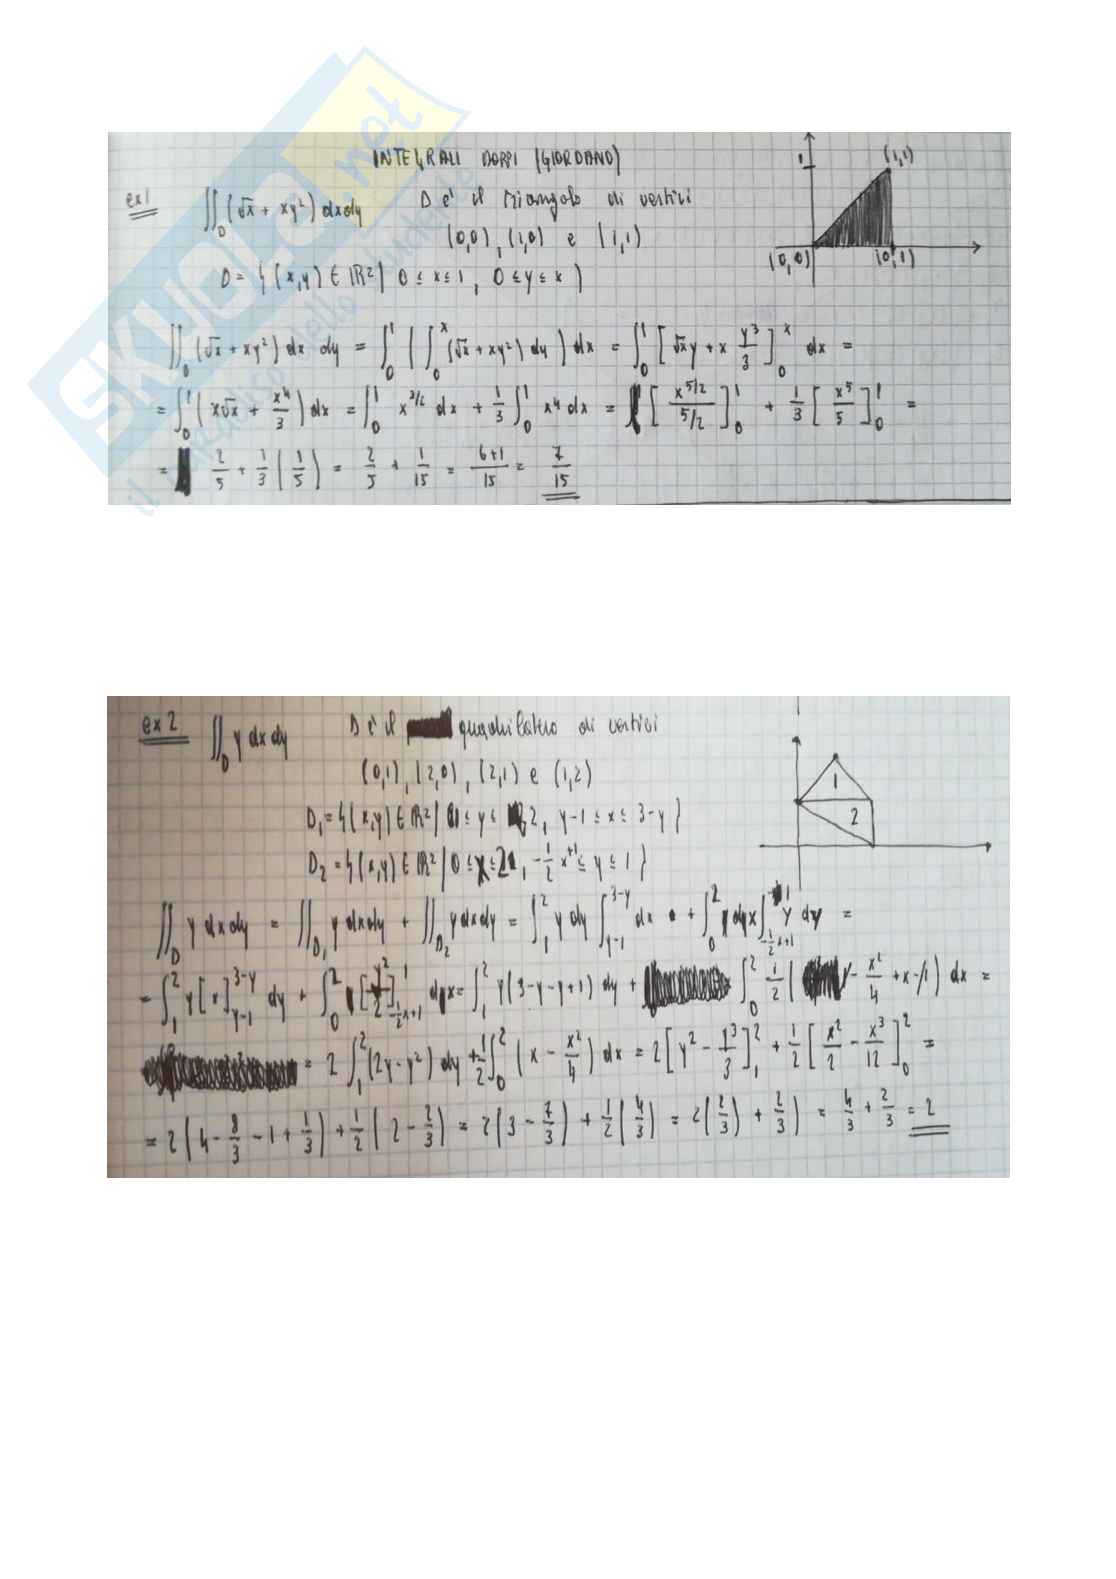 INTEGRALI DOPPI (GIORDANO)
ex1 ∬_D (√x + xy²) dxdy D è il triangolo di vertici
(0,0), (1,0) e (1,1)
D = {(x,y) ∈ ℝ² | 0 ≤ x ≤ 1, 0 ≤ y ≤ x}
1
(1,1)
(0,0) (0,1)
∬_D (√x + xy²) dx dy = ∫_0^1 (∫_0^x (√x + xy²) dy) dx = ∫_0^1 [√x y + x y³/3]_0^x dx =
= ∫_0^1 (x√x + x⁴/3) dx = ∫_0^1 x^{3/2} dx + 1/3 ∫_0^1 x⁴ dx = [x^{5/2}/(5/2)]_0^1 + 1/3 [x⁵/5]_0^1 =
= 2/5 + 1/3 (1/5) = 2/5 + 1/15 = (6+1)/15 = 7/15
ex 2 ∬_D y dx dy D è il quadrilatero di vertici
(0,1), (2,0), (2,1) e (1,2)
D₁ = {(x,y) ∈ ℝ² | 1 ≤ y ≤ 2, y-1 ≤ x ≤ 3-y}
D₂ = {(x,y) ∈ ℝ² | 0 ≤ x ≤ 2, -1/2 x+1 ≤ y ≤ 1}
1
2
∬_D y dx dy = ∬_{D₁} y dx dy + ∬_{D₂} y dx dy = ∫_1^2 y dy ∫_{y-1}^{3-y} dx + ∫_0^2 dx ∫_{-1/2 x+1}^1 y dy =
= ∫_1^2 y [x]_{y-1}^{3-y} dy + ∫_0^2 [y²/2]_{-1/2 x+1}^1 dx = ∫_1^2 y(3-y-y+1) dy + ∫_0^2 1/2 (1 - x²/4 + x - 1) dx =
= 2 ∫_1^2 (2y-y²) dy + 1/2 ∫_0^2 (x - x²/4) dx = 2 [y² - y³/3]_1^2 + 1/2 [x²/2 - x³/12]_0^2 =
= 2 (4 - 8/3 - 1 + 1/3) + 1/2 (2 - 2/3) = 2 (3 - 7/3) + 1/2 (4/3) = 2 (2/3) + 2/3) = 4/3 + 2/3 = 2
SKUOLA.net
il paradiso dello studente